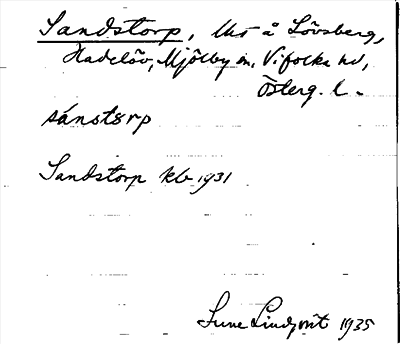 Sandstorp, Uts å Lövsberg,
Hadelöv, Mjölby sn, Vifolka hd,
Österg. l.
sánstɛrp
Sandstorp kb 1931
Sune Lindqvist 1935